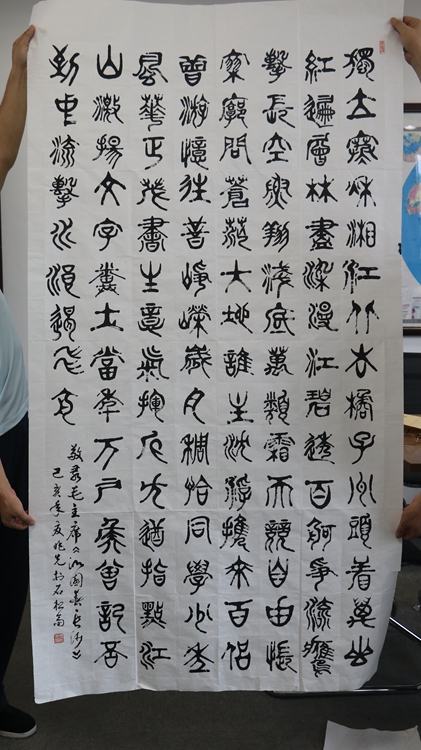 獨立寒秋湘江北去橘子洲頭看萬山
紅遍層林盡染漫江碧透百舸爭流鷹
擊長空魚翔淺底萬類霜天競自由悵
寥廓問蒼茫大地誰主沈浮攜來百侶
曾游憶往昔崢嶸歲月稠恰同學少年
風華正茂書生意氣揮斥方遒指點江
山激揚文字糞土當年万戶侯曾記否
到中流擊水浪遏飛舟
敬录毛主席《沁園春·長沙》
己亥年夏兆先於石松斋